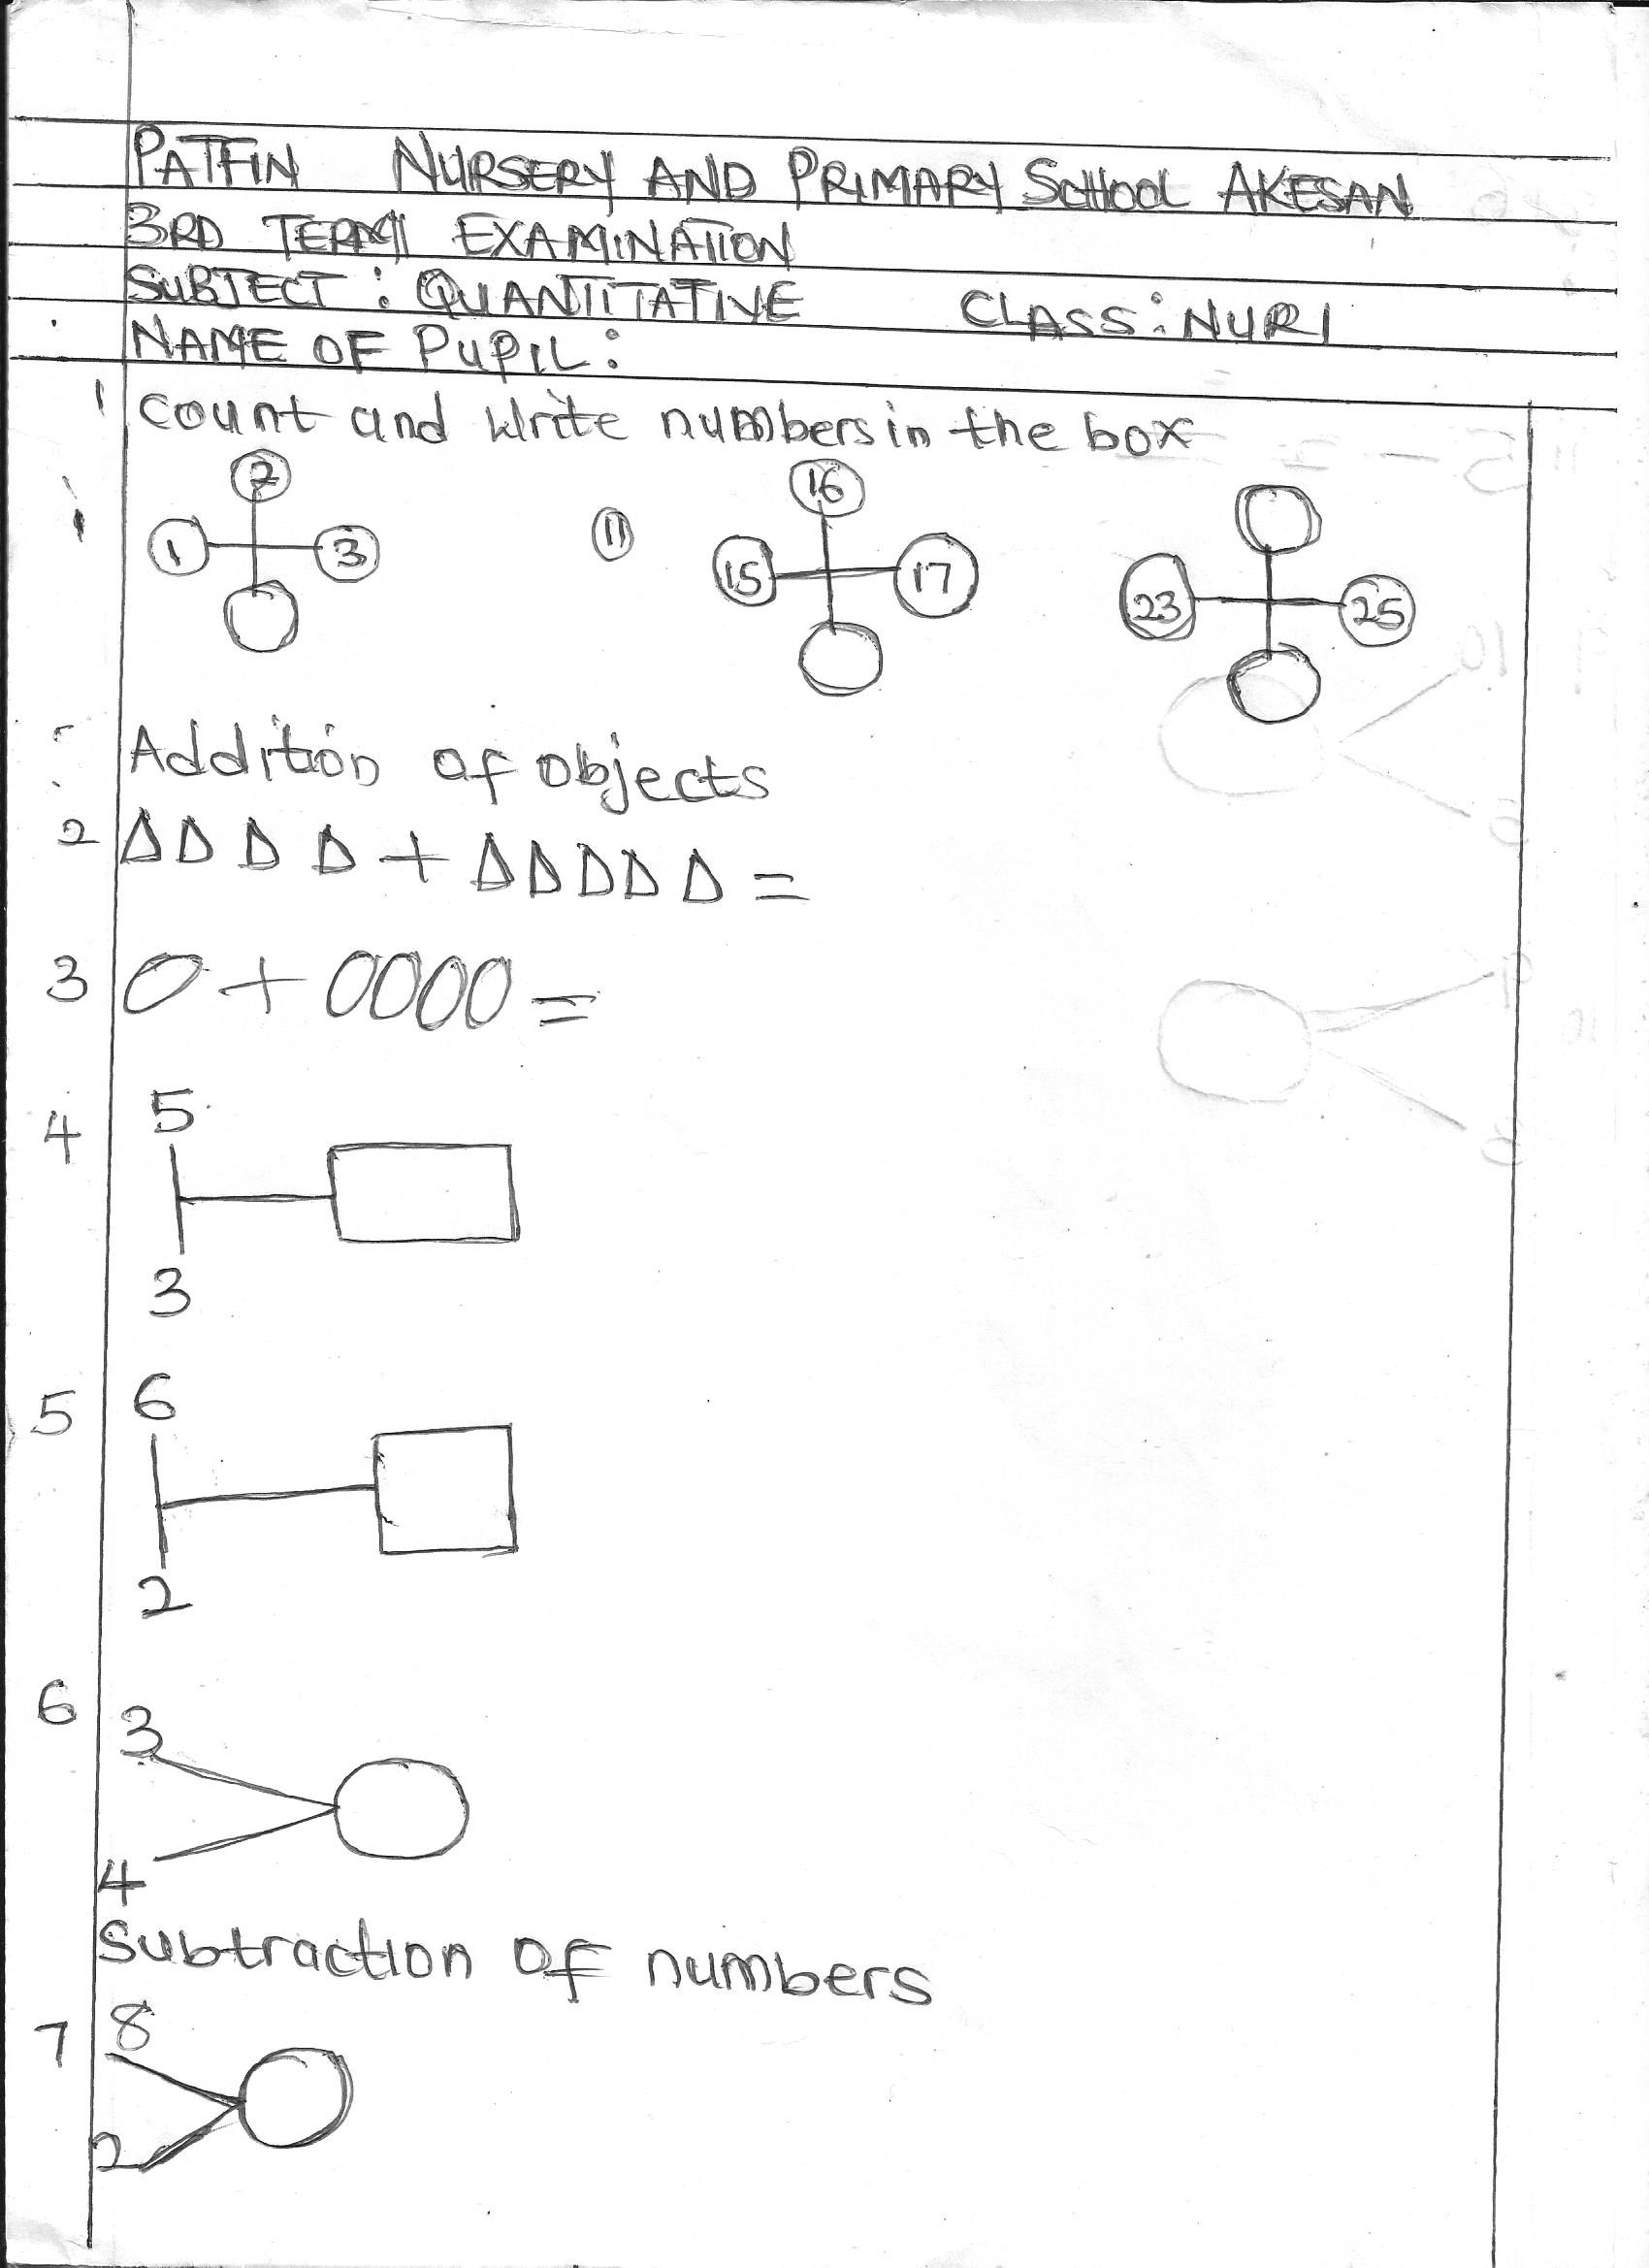 PATFIN NURSERY AND PRIMARY SCHOOL AKESAN
3RD TERM EXAMINATION
SUBJECT: QUANTITATIVE CLASS: NUR 1
NAME OF PUPIL:
1 Count and Write numbers in the box
i 1 2 3 ii 15 16 17 23 25
Addition of objects
2 Δ Δ Δ Δ + Δ Δ Δ Δ Δ =
3 0 + 0000 =
4 5
3
5 6
2
6 3
4
Subtraction of numbers
7 8
2